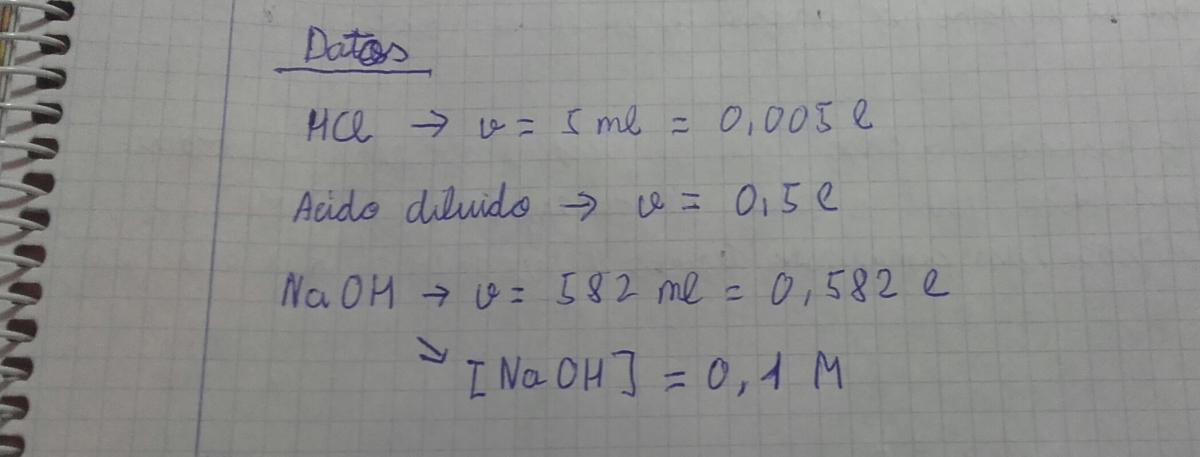 Datos
HCl → v = 5 ml = 0,005 l
Acido diluido → v = 0,5 l
NaOH → v = 582 ml = 0,582 l
↘ [NaOH] = 0,1 M